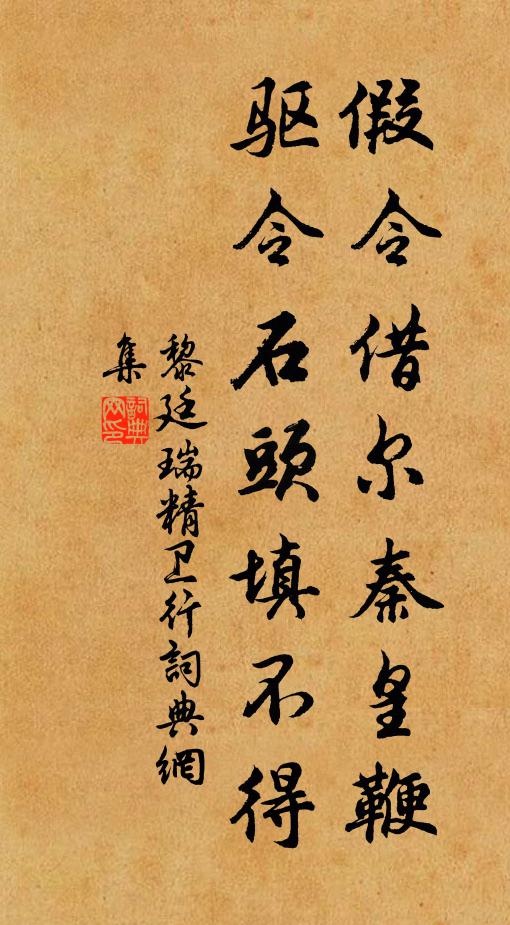 假令借尔秦皇鞭
驱令石头填不得
黎廷瑞精卫行詞典網
集
詞典网印